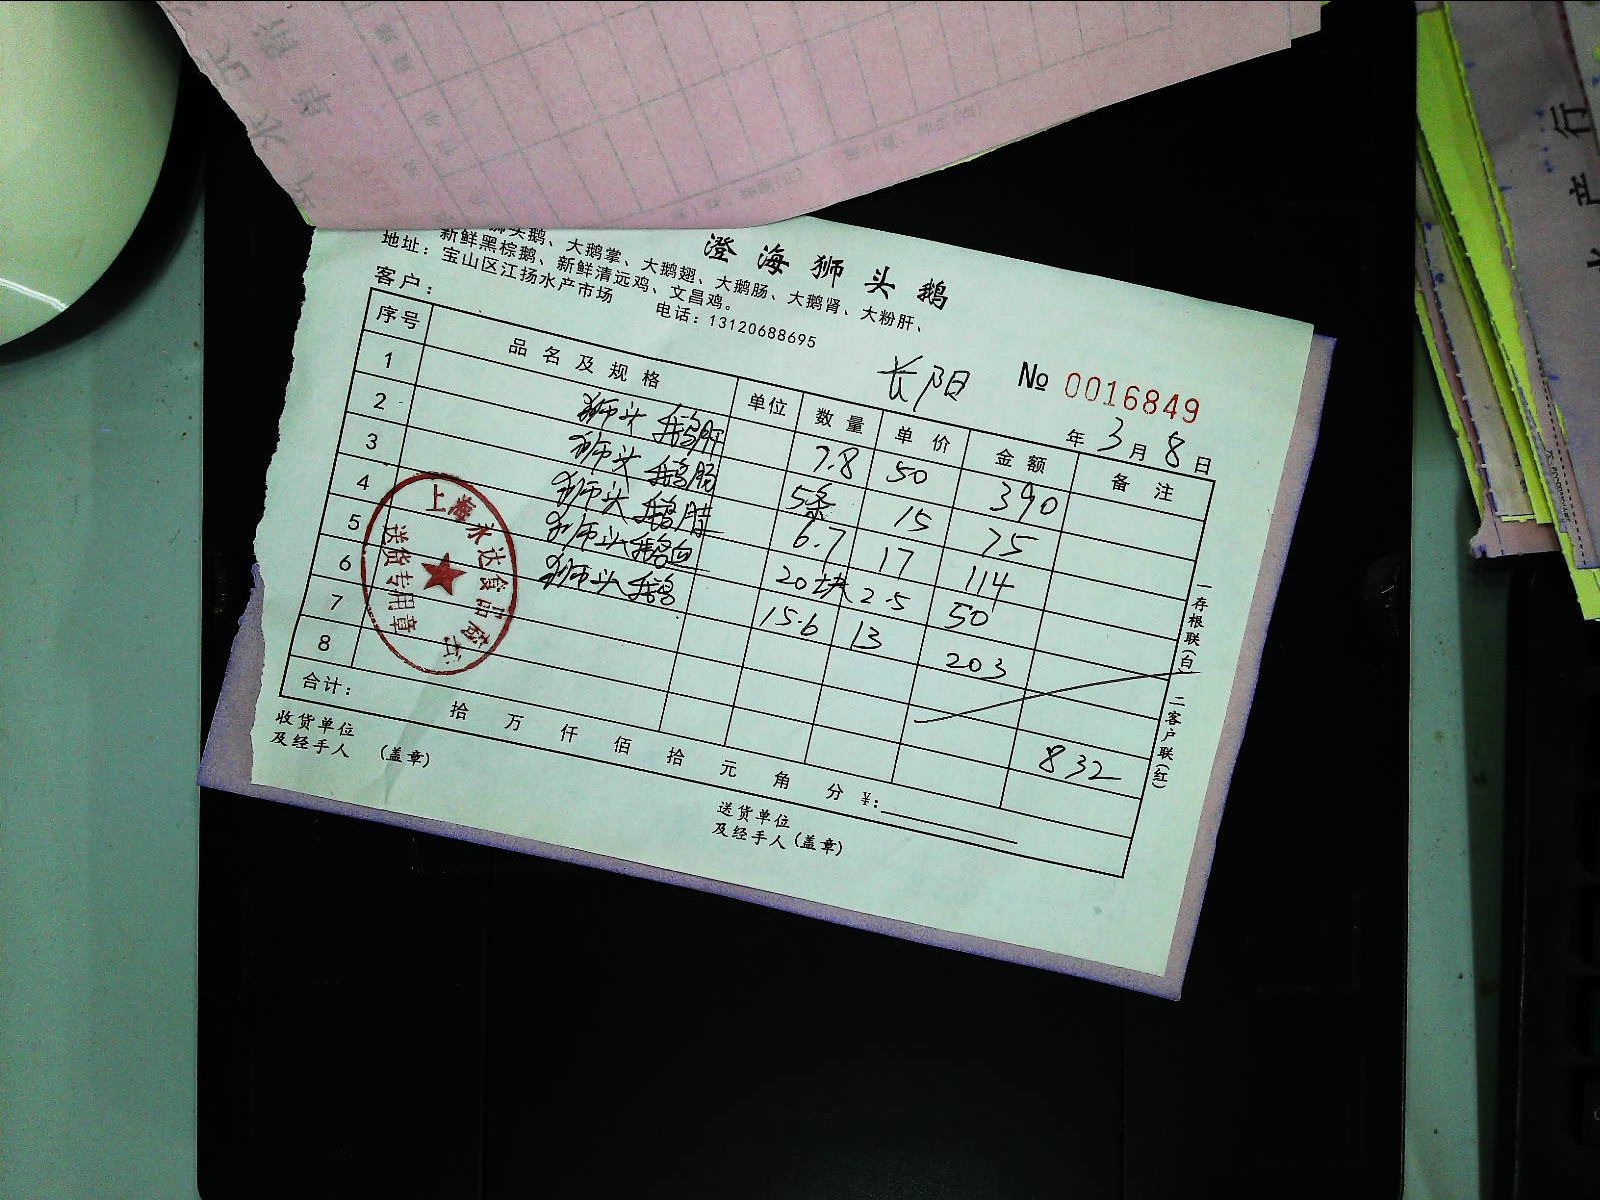 澄海狮头鹅
狮头鹅、大鹅掌、大鹅翅、大鹅肠、大鹅肾、大粉肝、
新鲜黑棕鹅、新鲜清远鸡、文昌鸡。
地址：宝山区江扬水产市场 电话：13120688695
长阳 № 0016849
客户： 年 3 月 8 日
序号 品名及规格 单位 数量 单价 金额 备注
1 狮头鹅肝 7.8 50 390
2 狮头鹅肠 5条 15 75
3 狮头鹅腊 6.7 17 114
4 狮头鹅血 20块 2.5 50
5 狮头鹅 15.6 13 203
6
7
8 832
合计： 拾 万 仟 佰 拾 元 角 分 ¥:
收货单位
及经手人 (盖章)
送货单位
及经手人(盖章)
一存根联(白) 二客户联(红)
上海永达食品
送货专用章